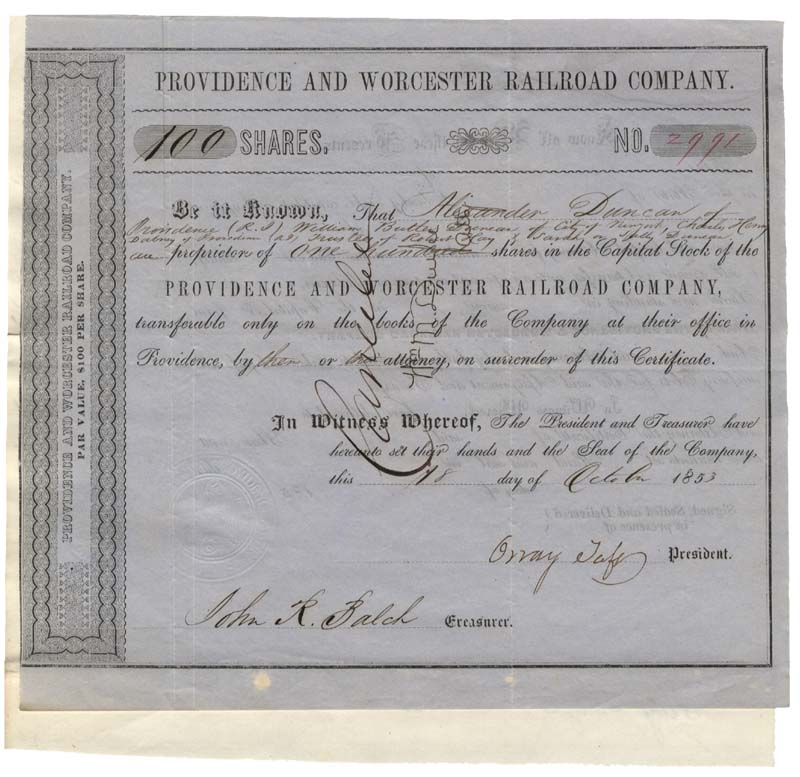 PROVIDENCE AND WORCESTER RAILROAD COMPANY.
100 SHARES. NO. 2991
Be it Known, That Alexander Duncan of
Providence (R.I) William Butler Duncan of City of Newyork, Charles Henry
Dabney of Providence Trustees of Robert Hay
are proprietor of One hundred shares in the Capital Stock of the
PROVIDENCE AND WORCESTER RAILROAD COMPANY,
transferable only on the books of the Company at their office in
Providence, by their or attorney, on surrender of this Certificate.
In Witness Whereof, The President and Treasurer have
hereunto set their hands and the Seal of the Company,
this 18 day of October 1853
Orray Taft President.
John R. Balch Treasurer.
Cancelled
PROVIDENCE AND WORCESTER RAILROAD COMPANY.
PAR VALUE, $100 PER SHARE.